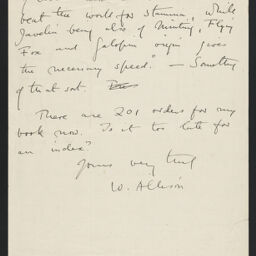 beat the world for stamina, while
Javelin being also of Minting, Flying
Fox and Galopin origin gives
the necessary speed." — Something
of that sort.
There are 201 orders for my
book now. Is it too late for
an index?
Yours very truly
W. Allison